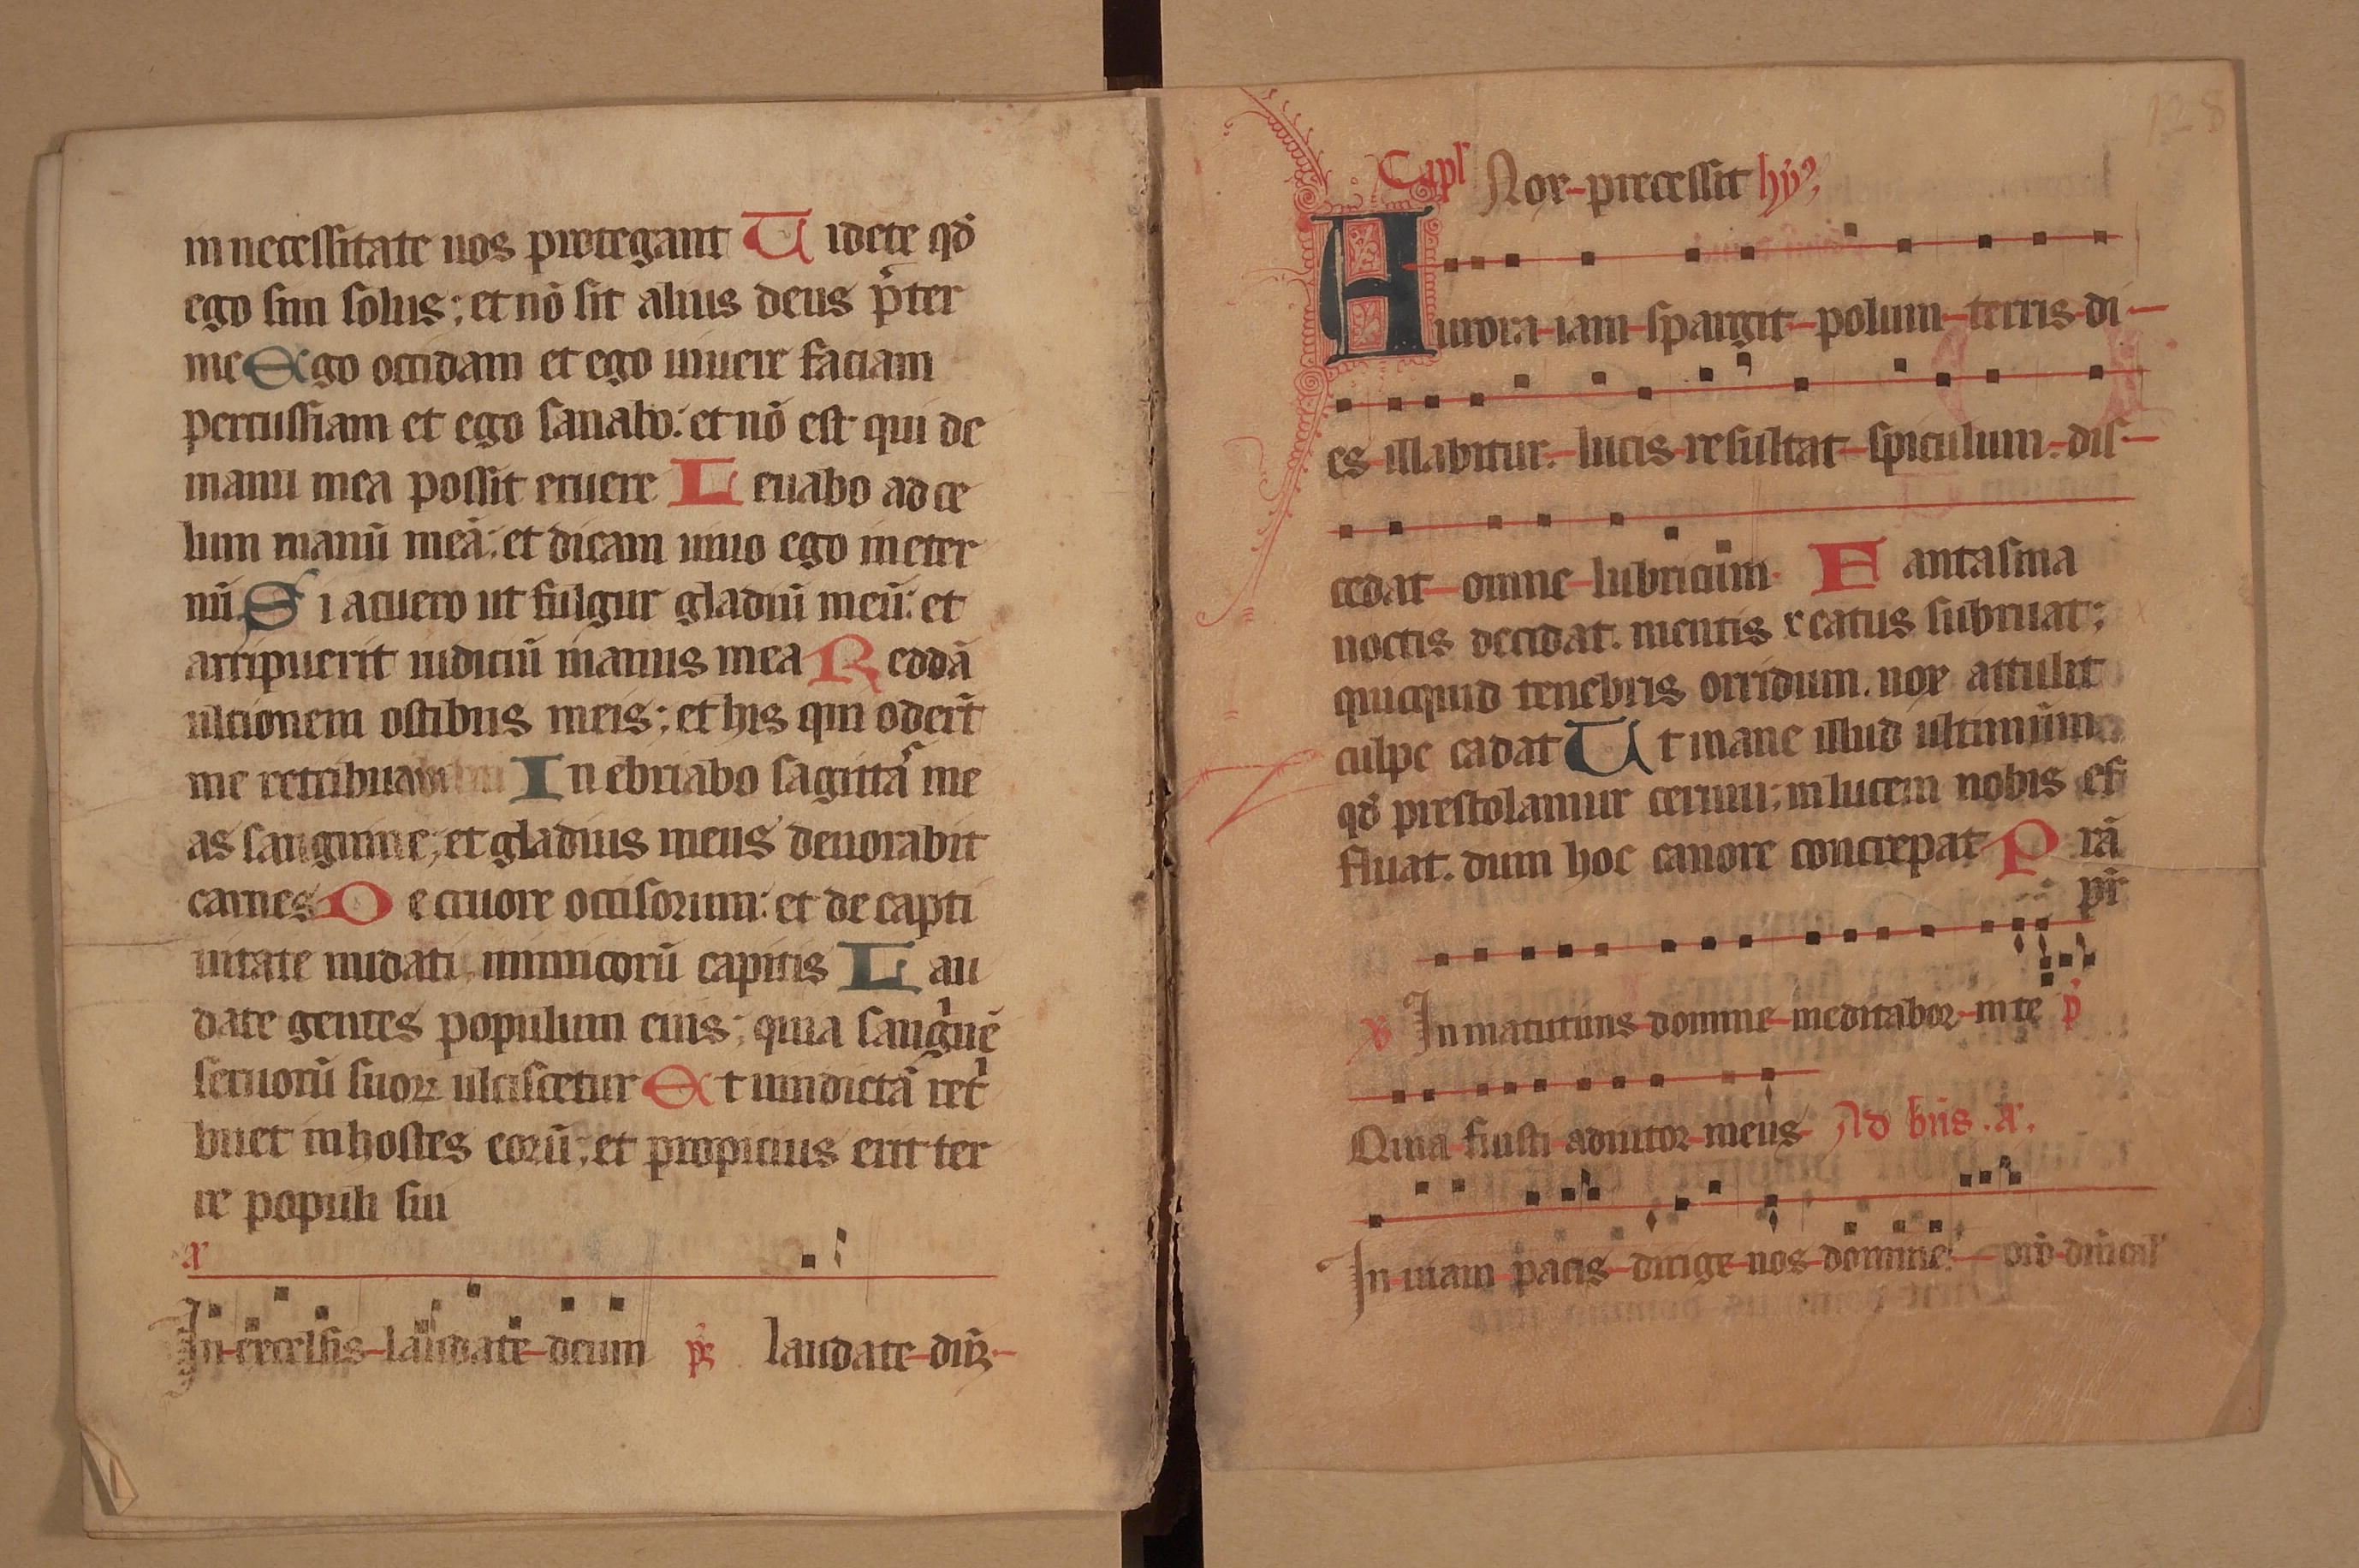 in necessitate uos protegant Uidete qđ
ego sim solus; et nō sit alius deus p̄ter
me Ego occidam et ego uiuere faciam
percussiam et ego sanabo: et nō est qui de
manu mea possit eruere Leuabo ad ce
lum manū meā: et dicam uiuo ego in eter
nū. Si acuero ut fulgur gladiū meū: et
arripuerit iudiciū manus mea Reddā
ultionem ostibus meis; et his qui oder̄t
me retribuam Inebriabo sagittas me
as sanguine; et gladius meus deuorabit
carnes De cruore occisorum: et de capti
uitate nudati inimicorū capitis Lau
date gentes populum eius; quia sanguinē
seruorū suoꝝ ulciscetur Et uindictā ret
buet in hostes eorū; et propicius erit ter
re populi sui
a
In excelsis laudate deum ps laudate dn̄
128
Capl Nox precessit hy
Aurora iam spargit polum terris di
es illabitur. lucis resultat spiculum. dis
cedat omne lubricum. Fantasma
noctis decidat. mentis reatus subruat;
quicquid tenebris orridum. nox attulit
culpe cadat Ut mane illud ultimum
qđ prestolamur cernui; in lucem nobis ef
fluat. dum hoc canore concrepat Prā
pr̄
V In matutinis domine meditabor in te p
Quia fuisti adiutor meus Ad bn̄s. a.
In uiam pacis dirige nos domine.